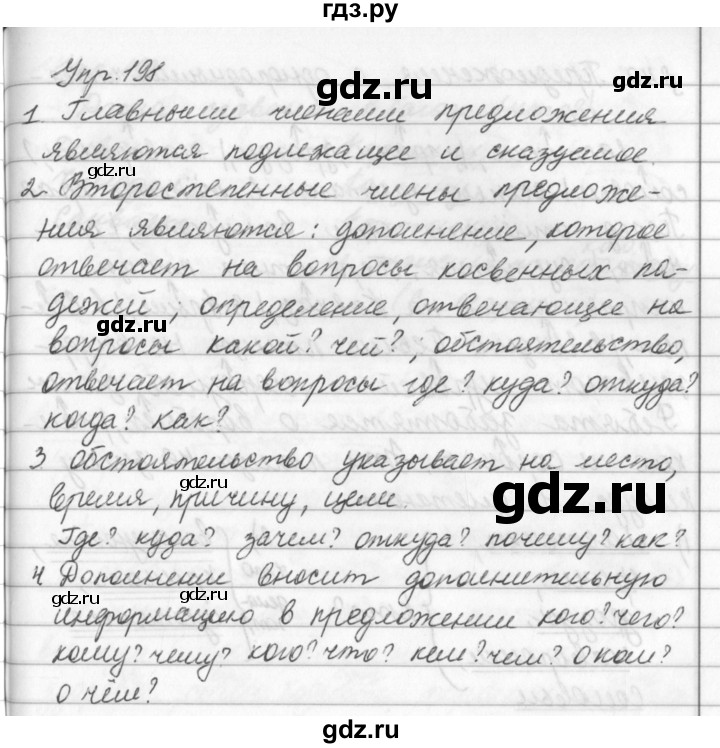 гдз.ру
Упр. 198
gdz.ru
1 Главными членами предложения
являются подлежащее и сказуемое.
gdz.ru
gdz.ru
2. Второстепенные члены предложе-
ния являются: дополнение, которое
отвечает на вопросы косвенных па-
дежей; определение, отвечающее на
gdz.ru
вопросы какой? чей?; обстоятельство,
gdz.ru
отвечает на вопросы где? куда? откуда?
когда? как?
3 обстоятельство указывает на место,
время, причину, цели.
gdz.ru
gdz.ru
gdz.ru
Где? куда? зачем? откуда? почему? как?
4 Дополнение вносит дополнительную
gdz.ru
gdz.ru
информацию в предложении кого? чего?
кому? чему? кого? что? кем? чем? О ком?
gdz.ru
gdz.ru
о чём?
gdz.ru